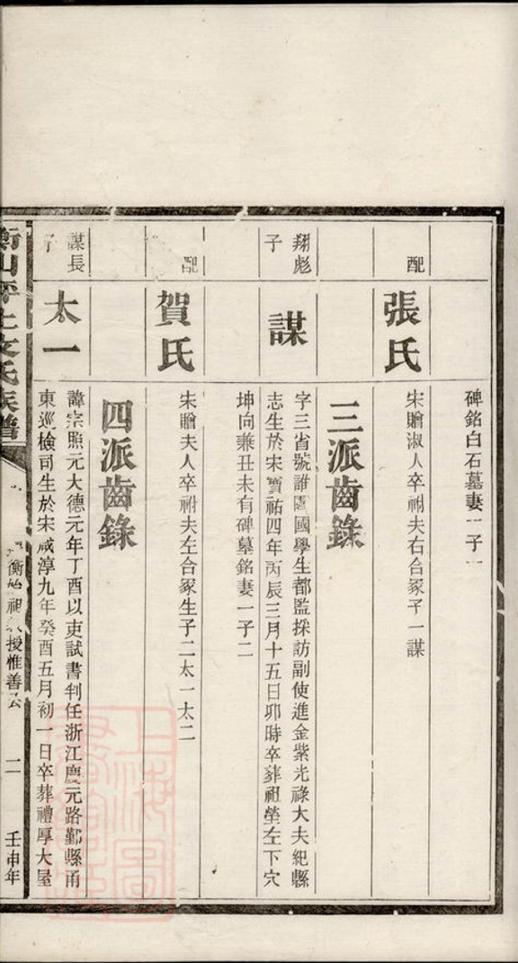 碑銘白石墓妻一子一
配
張氏
宋贈淑人卒祔夫右合冢子一謀
三派齒錄
翔彪子
謀
字三省號誰國學生都監採訪副使進金紫光祿大夫紀縣
志生於宋寶祐四年丙辰三月十五日卯時卒葬祖塋左下穴
坤向兼丑未有碑墓銘妻一子二
配
賀氏
宋贈夫人卒祔夫左合冢生子二太一太二
四派齒錄
謀長子
太一
諱宗照元大德元年丁酉以吏試書判任浙江慶元路鄞縣甬
東巡檢司生於宋咸淳九年癸酉五月初一日卒葬禮厚大屋
衡山平上文氏族譜
衡始祖授惟善公
二
壬申年